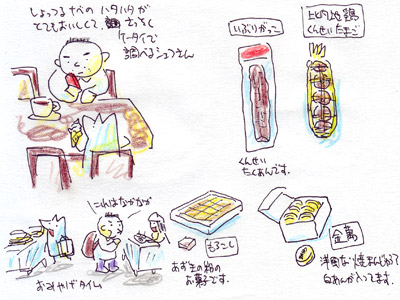 しょっつるなべのハタハタが
とてもおいしくて、さっそく
ケータイで
調べるシュフさん
いぶりがっこ
くんせい
たくあんです。
比内地鶏
くんせいたまご
おみやげタイム
これはなかなか
もろこし
あずきの粉の
お菓子です。
金萬
洋風な焼まんじゅうで
白あんが入ってます。